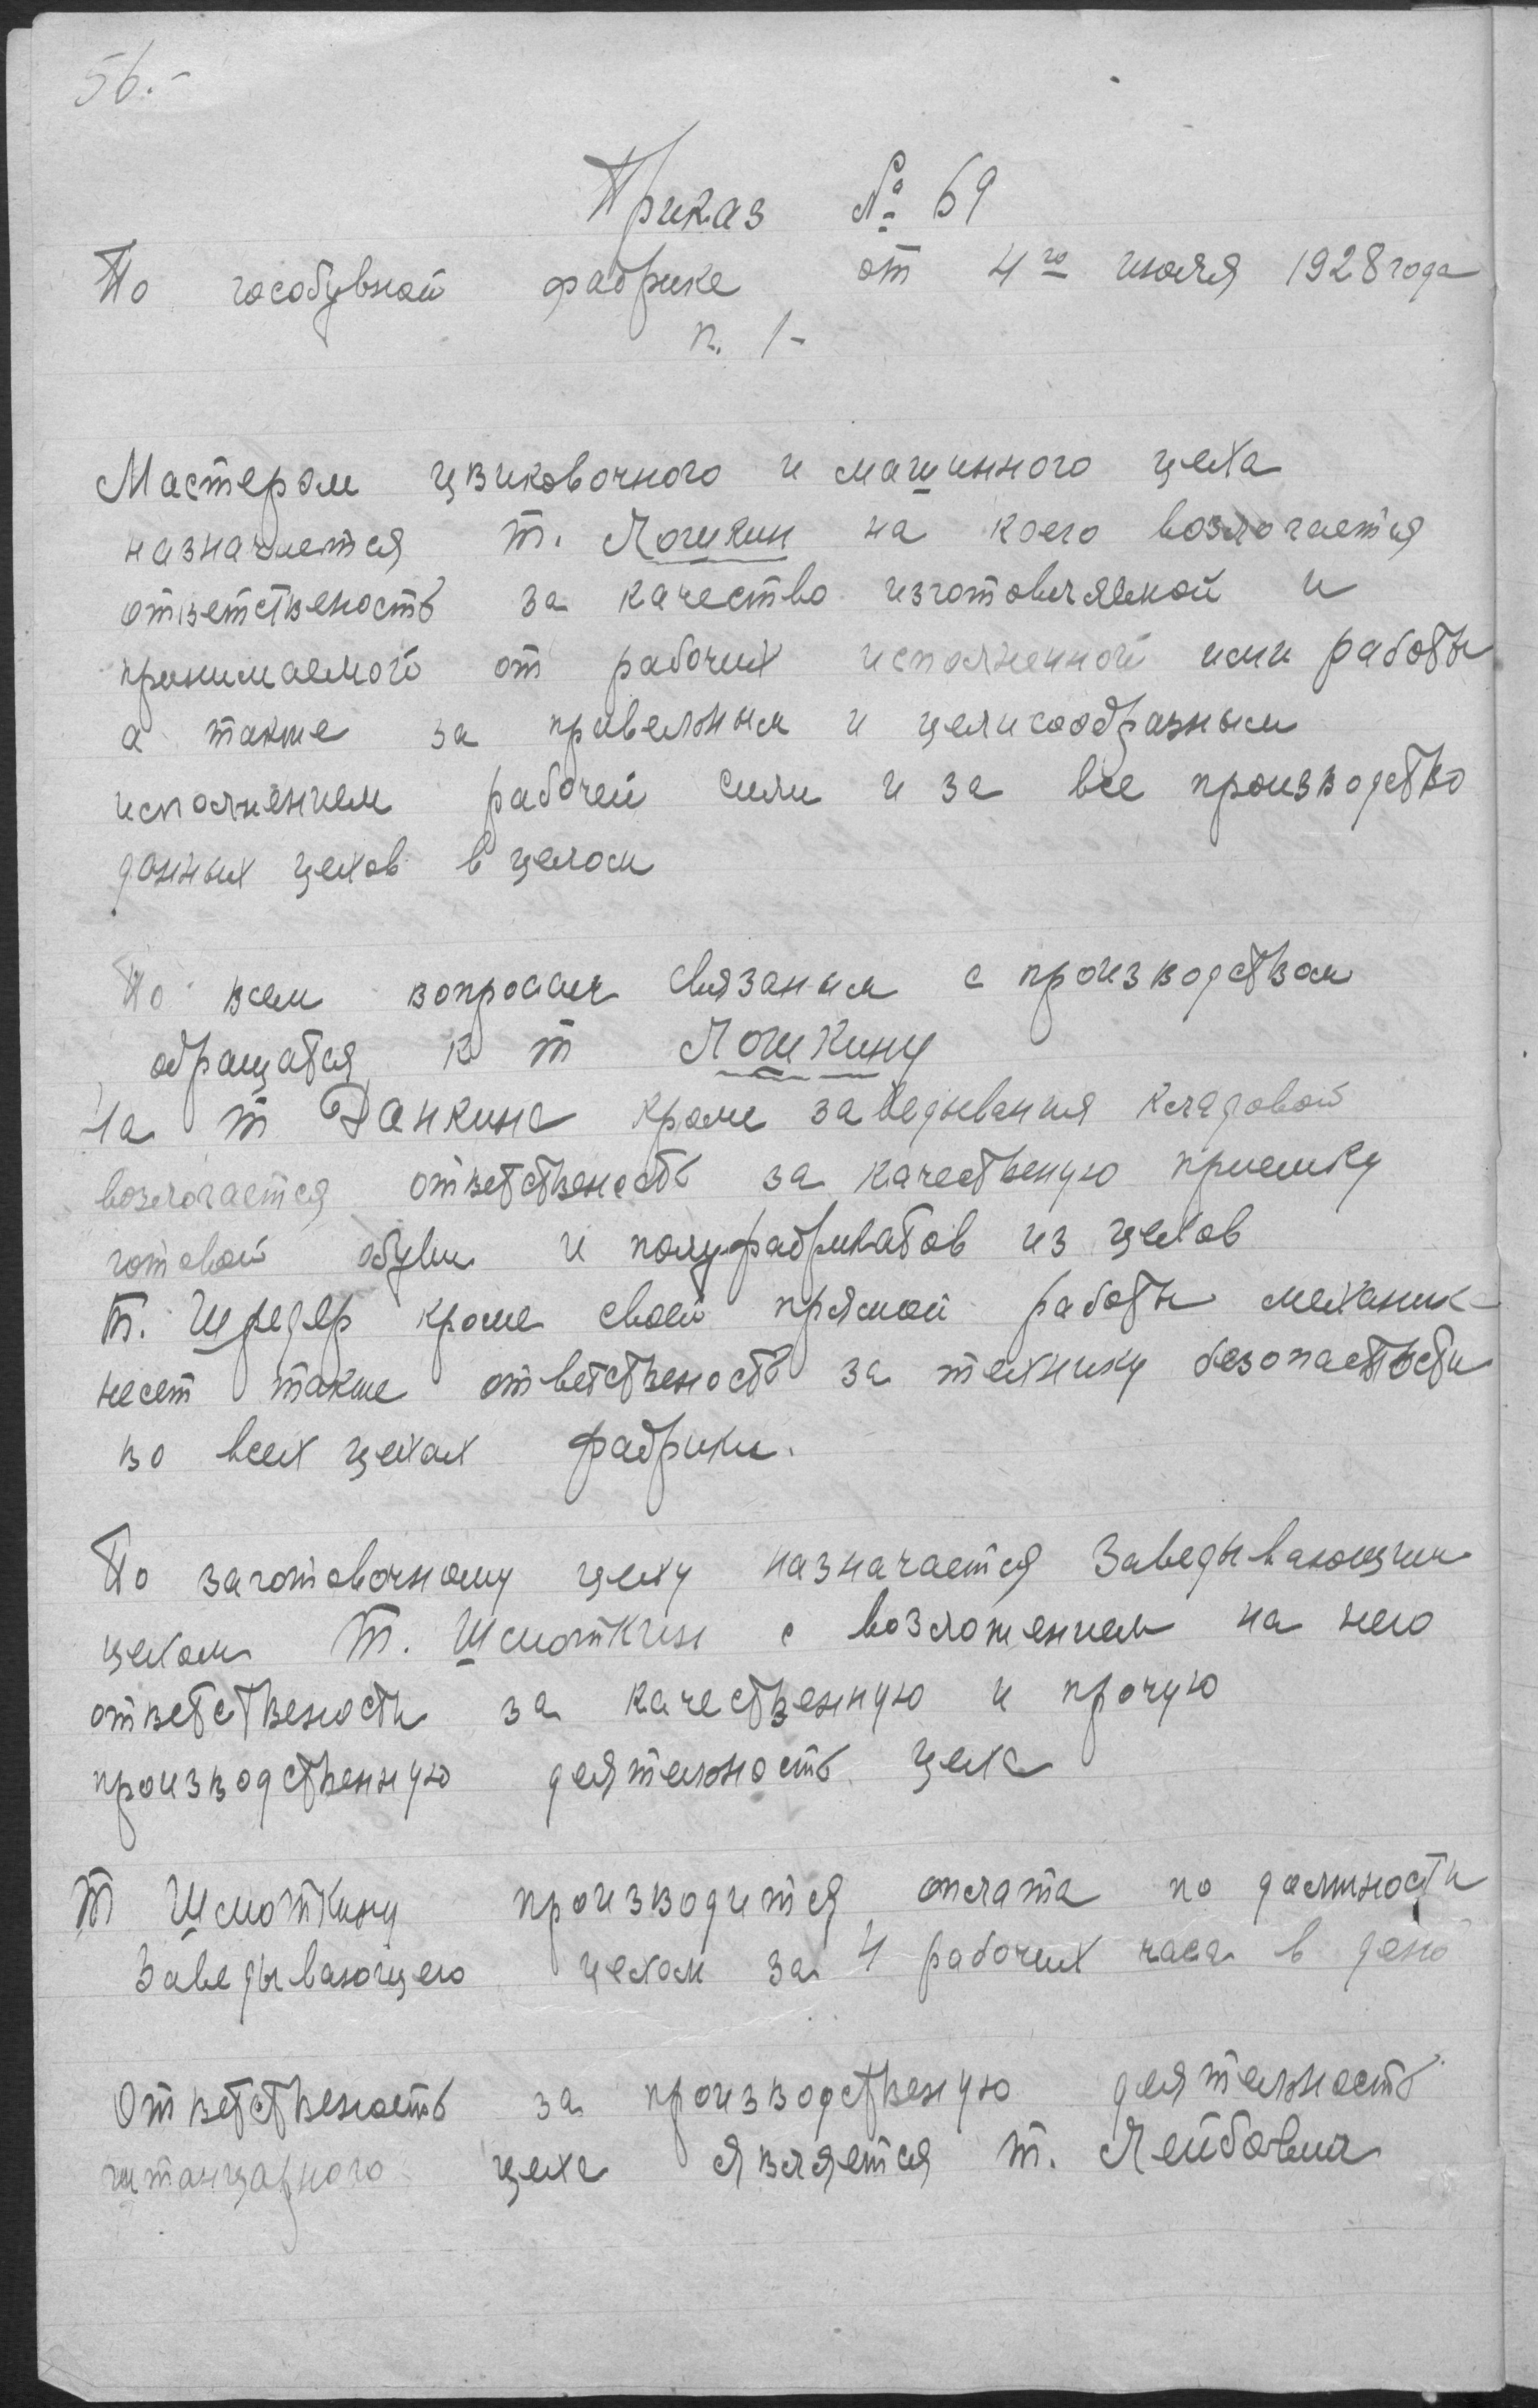 56.-
Приказ № 69
По гособувной фабрике от 4го июля 1928 года
п. 1-
Мастером цвиковочного и машинного цеха
назначается т. Лошкин на коего возлогается
ответственость за качество изготовляемой и
принимаемого от рабочих исполненной ими работы
а также за правельным и целисообразным
исполнением рабочей силы и за все производство
данных цехов в целом
По всем вопросам связаным с производством
обращатся к т Лошкину
На т Данкина кроме заведывания кладовой
возлогается ответственость за качественую приемку
готовой обуви и полуфабрикатов из цехов
Т. Шредер кроме своей прямой работы механика
несет также ответственость за технику безопастности
во всех цехах фабрики.
По заготовочному цеху назначается Заведывающим
цехом Т. Шмоткин с возложением на него
ответствености за качественную и прочую
производственную деятельность цеха
Т Шмоткину производится оплата по должности
Заведывающего цехом за 4 рабочих часа в день
Ответственость за производственую деятельность
штанцавного цеха является т. Лейбович